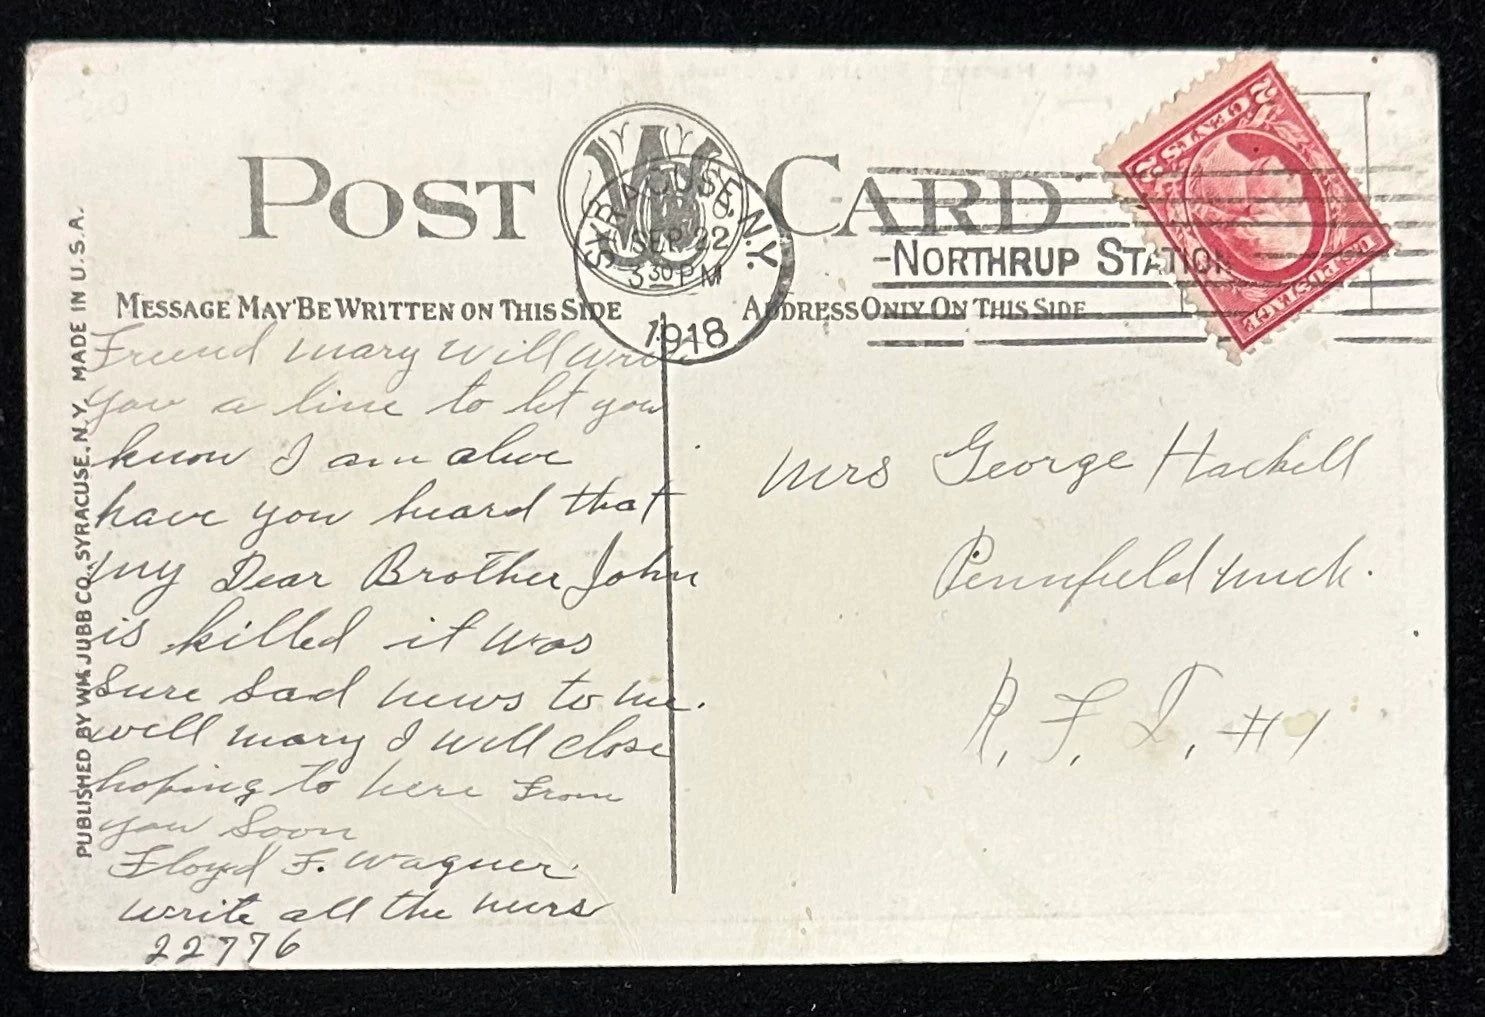 POST CARD
SYRACUSE, N.Y.
SEP 22
3 30 PM
1918
NORTHRUP STATION
2 CENTS 2
U.S. POSTAGE
MESSAGE MAY BE WRITTEN ON THIS SIDE
ADDRESS ONLY ON THIS SIDE
PUBLISHED BY WM. JUBB CO., SYRACUSE, N.Y. MADE IN U.S.A.
Friend Mary Will Write
you a line to let you
know I am alive
have you heard that
my Dear Brother John
is killed it was
Sure Sad news to me.
well mary I will close
hoping to here From
you Soon
Floyd F. Wagner
write all the news
22776
Mrs George Hackell
Pennfield Mich.
R. F. D. #1